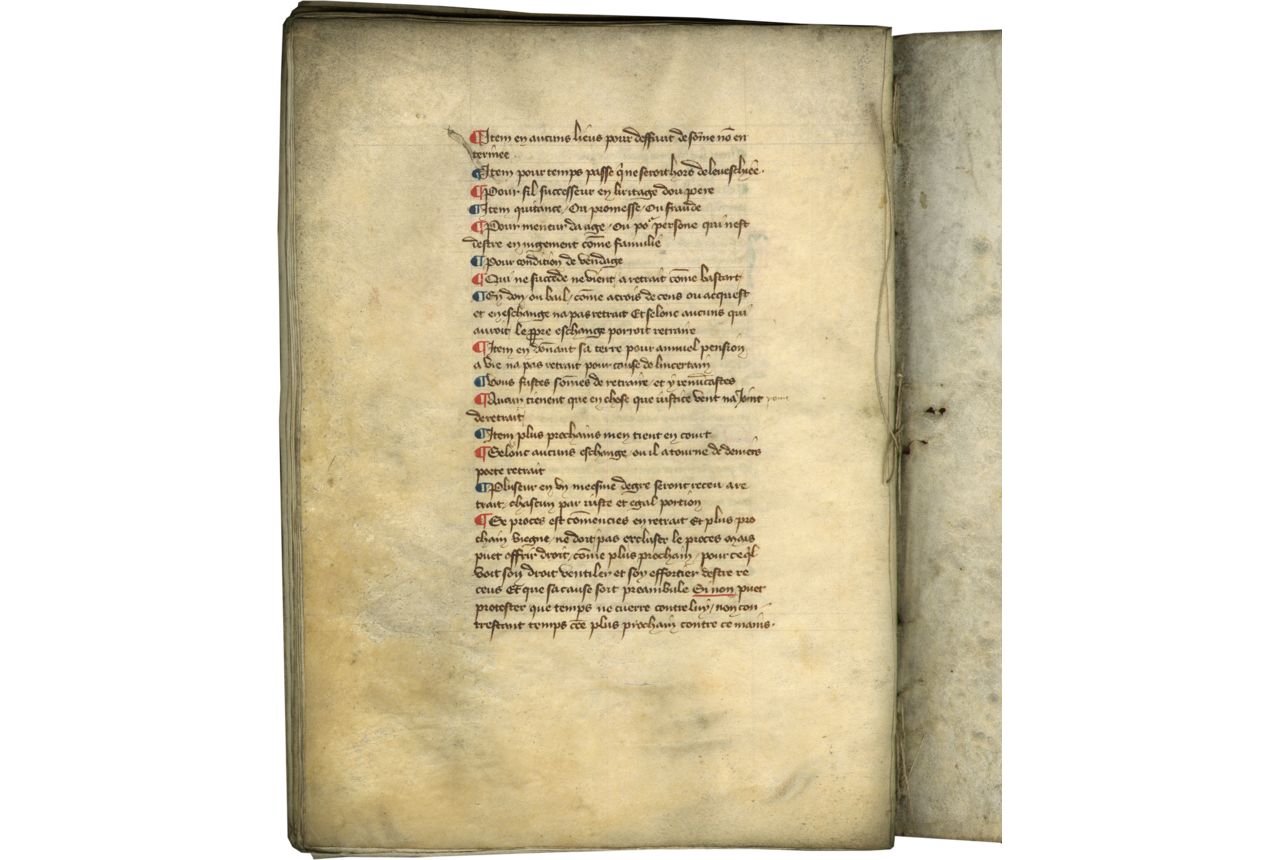 ¶ Item en aucuns lieus pour deffaut de so͞me no͞ en
terinee .
¶ Item pour temps passe q̓ ne seroit hors de leveschiee .
¶ Pour fil successeur en heritage dou pere
¶ Item quitance / Ou promesse / Ou fraude
¶ Pour meneur daage / Ou po persone qui nest
destre en jugement co͞me
¶ Pour condition de vendage
¶ Qui ne succede ne vient a retrait co͞me bastart
¶ En don / ou bail / co͞me acrois de cens ou acquest
et en eschange na pas retrait Et selonc aucuns qui
auroit le ppre eschange porroit retraire
¶ Item en donant sa terre pour annuel pension
a vie na pas retrait pour cause de lincertain
¶ Vous fustes so͞mes de retraire / et y renuncastes
¶ Aucun tienent que en chose que justice vent na
de retrait
¶ Item plus prochains men tient en court
¶ Selonc aucuns eschange / ou il a tourne de deniers
porte retrait
¶ Pluseur en un meesme degre seront receu a re
trait / chascun par juste et egal portion
¶ Se proces est co͞mencies en retrait Et plus pro
chain viegne / ne doit pas exclurre le proces mais
puet offrir droit / co͞me plus prochain / pour ce q̓l
voit son droit ventiler et soy effortier destre re
ceus Et que sa cause soit preambule Si non puet
protester que temps ne cuerre contre luy / non con
trestant temps plus prochain contre ce mains .